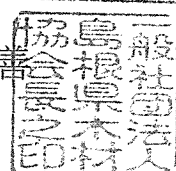 一般社団法人
島根県木材
協会長之印
善